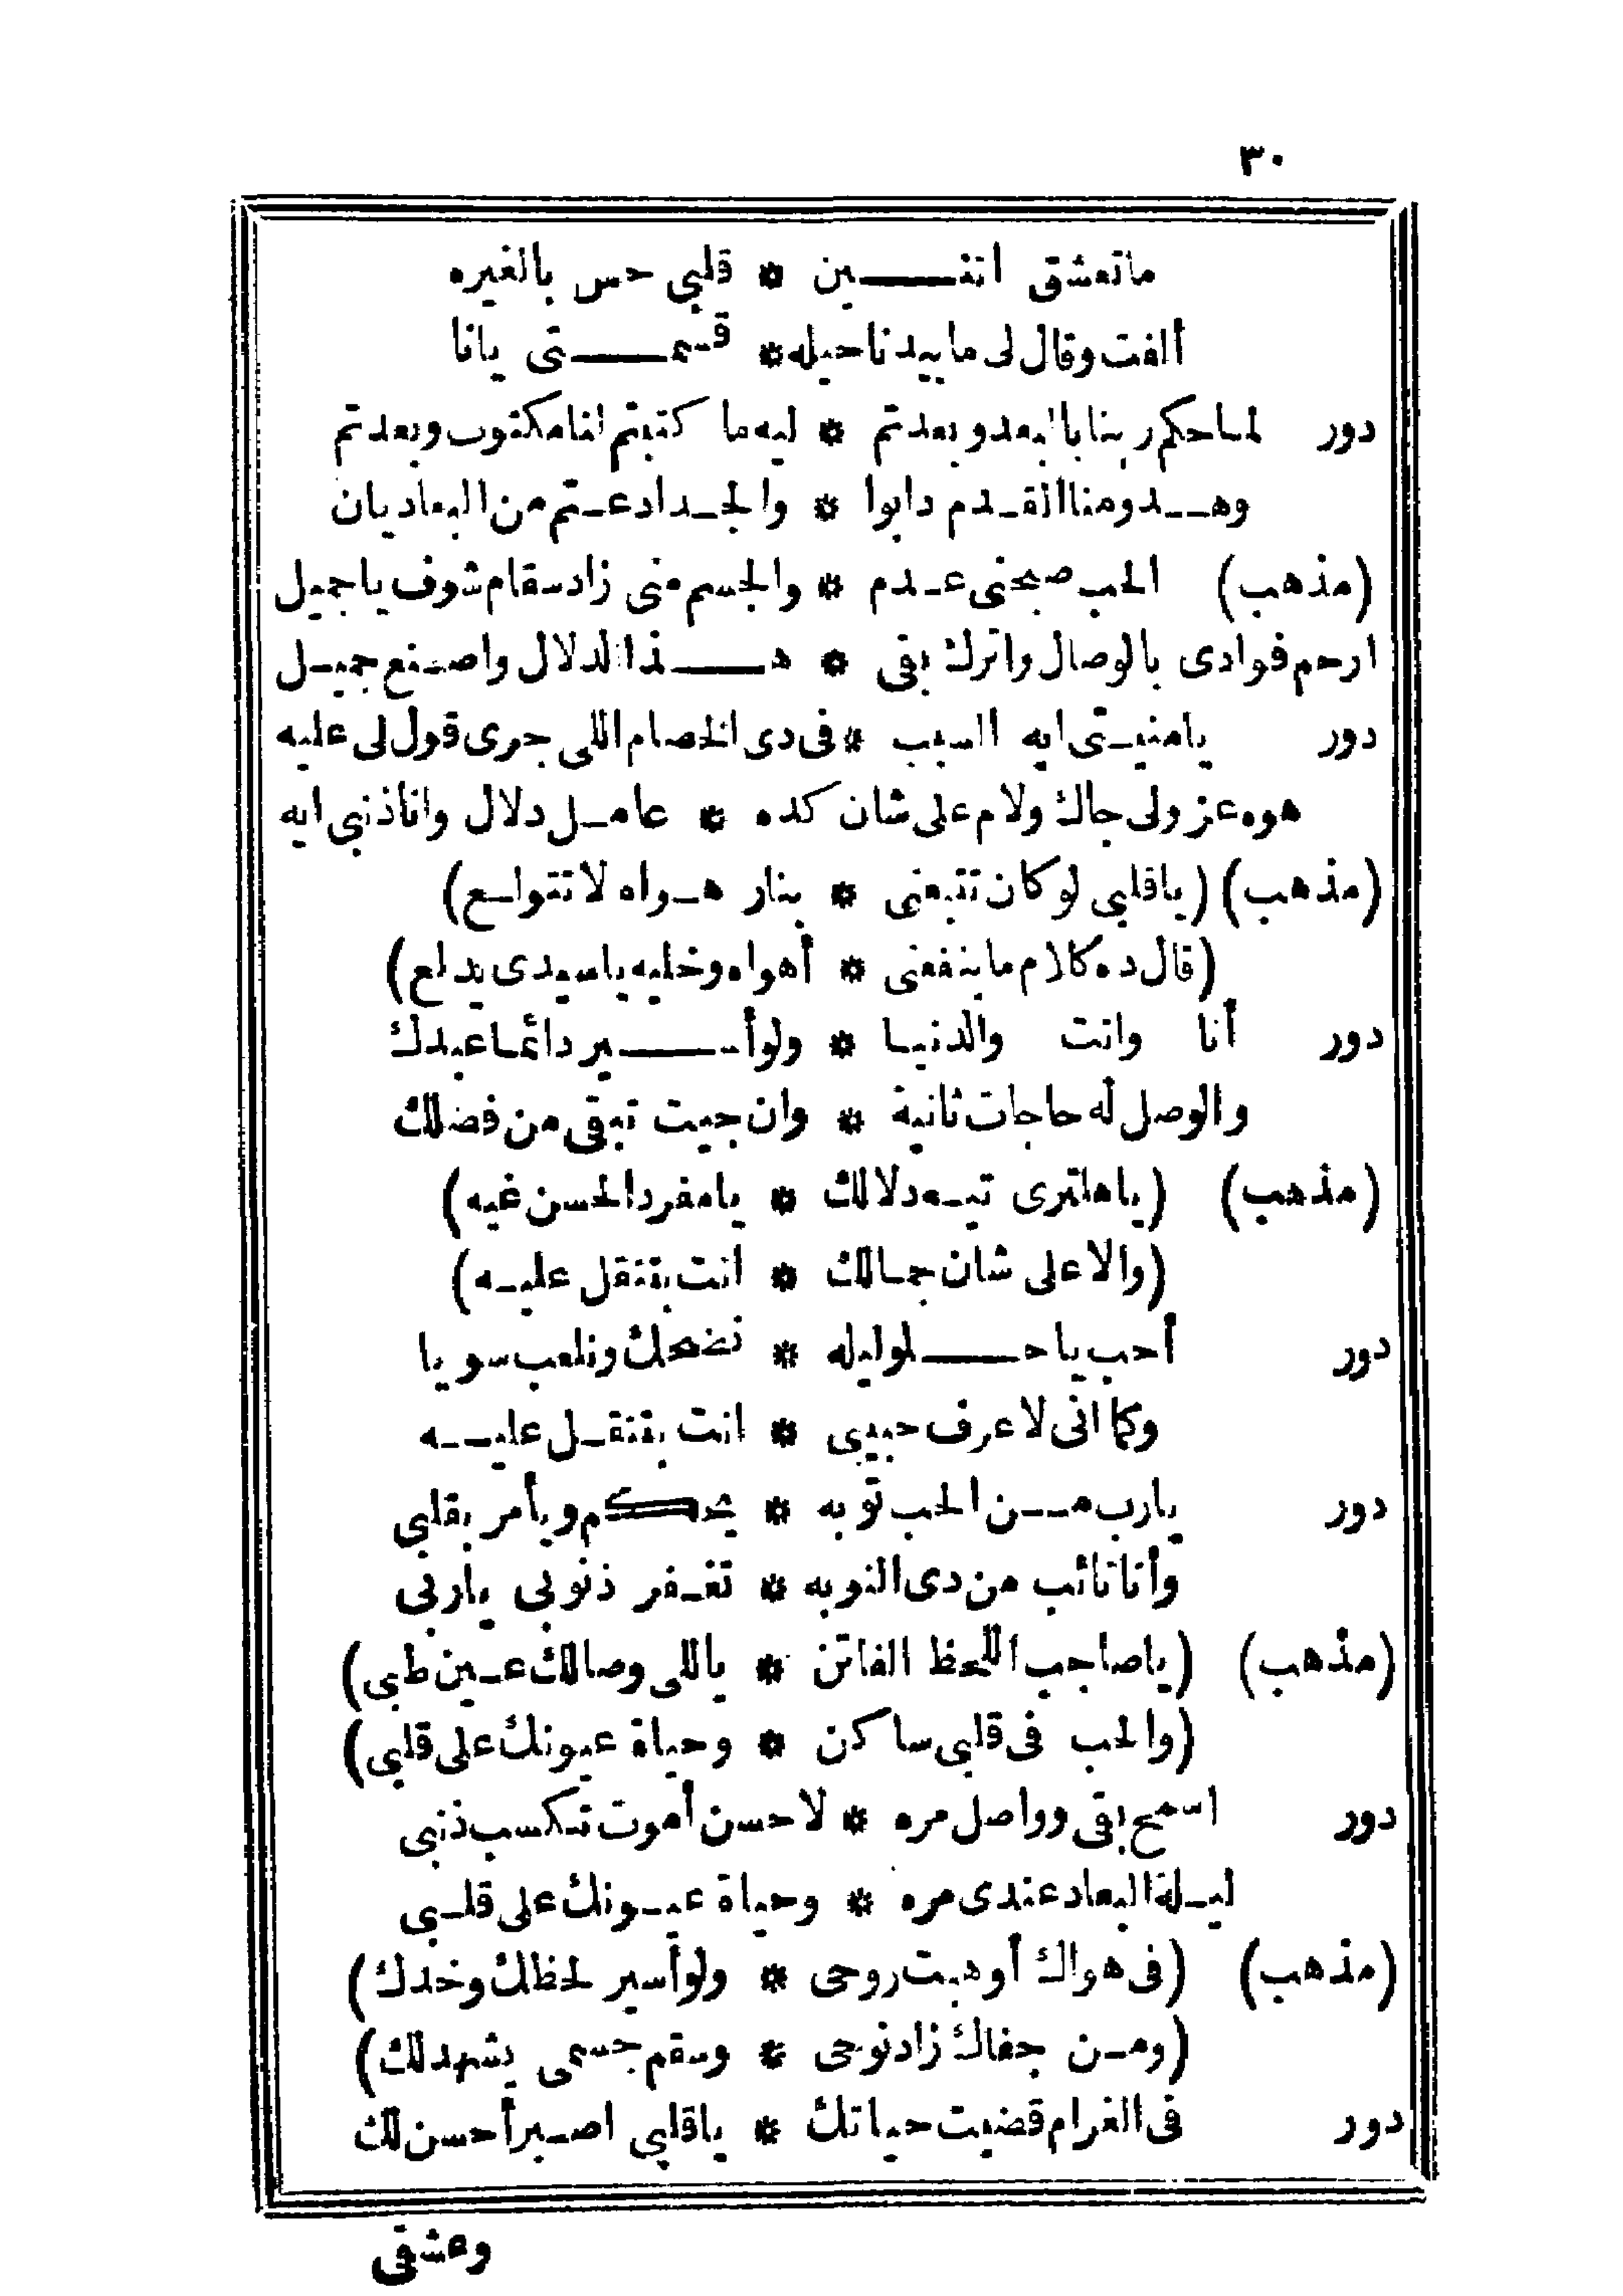 ٣٠
ماتعشق اتنين * قلبي حس بالغيره
ألفت وقال لى ما بيدنا حيله * قسمتى يانا
دور لما حكم ربنا بالبعد وبعدتم * ليه ما كتبتم لنا مكتوب وبعدتم
وهدومنا القدم دابوا * والجداد عتم من البعاد يان
(مذهب) الحب صبحنى عدم * والجسم منى زاد سقام شوف يا جميل
ارحم فوادى بالوصال واترك بقى * هذا الدلال واصنع جميل
دور يا منيتى ايه السبب * فى دى الخصام اللى جرى قول لى عليه
هوه عزولى جاك ولام على شان كده * عامل دلال وانا ذنبى ايه
(مذهب) (يا قلبى لو كان تتبعنى * بنار هواه لا تتولع)
(قال ده كلام ما ينفعنى * أهواه وخليه يا سيدى يدلع)
دور أنا وانت والدنيا * ولو أسير دائما عبدك
والوصل له حاجات ثانية * وان جيت تبقى من فضلك
(مذهب) (يا هلترى تيه دلالك * يا مفرد الحسن غيه)
(والا على شان جمالك * انت بتتقل عليه)
دور أحب يا حلو ليله * نضحك ونلعب سويا
وكما انى لا عرف حبيبى * انت بتتقل عليه
دور يارب من الحب توبه * يحكم ويأمر بقلبى
وأنا تائب من دى النوبه * تغفر ذنوبى ياربى
(مذهب) (يا صاحب اللحظ الفاتن * ياللى وصالك عين طبى)
(والحب فى قلبى ساكن * وحياة عيونك على قلبى)
دور اسمح بقى وواصل مره * لاحسن أموت تكسب ذنبى
ليلة البعاد عندى مره * وحياة عيونك على قلبى
(مذهب) (فى هواك أوهبت روحى * ولو أسير لحظك وخدك)
(ومن جفاك زاد نوحى * وسقم جسمى يشهد لك)
دور فى الغرام قضيت حياتك * يا قلبى اصبر أحسن لك
وعشقى